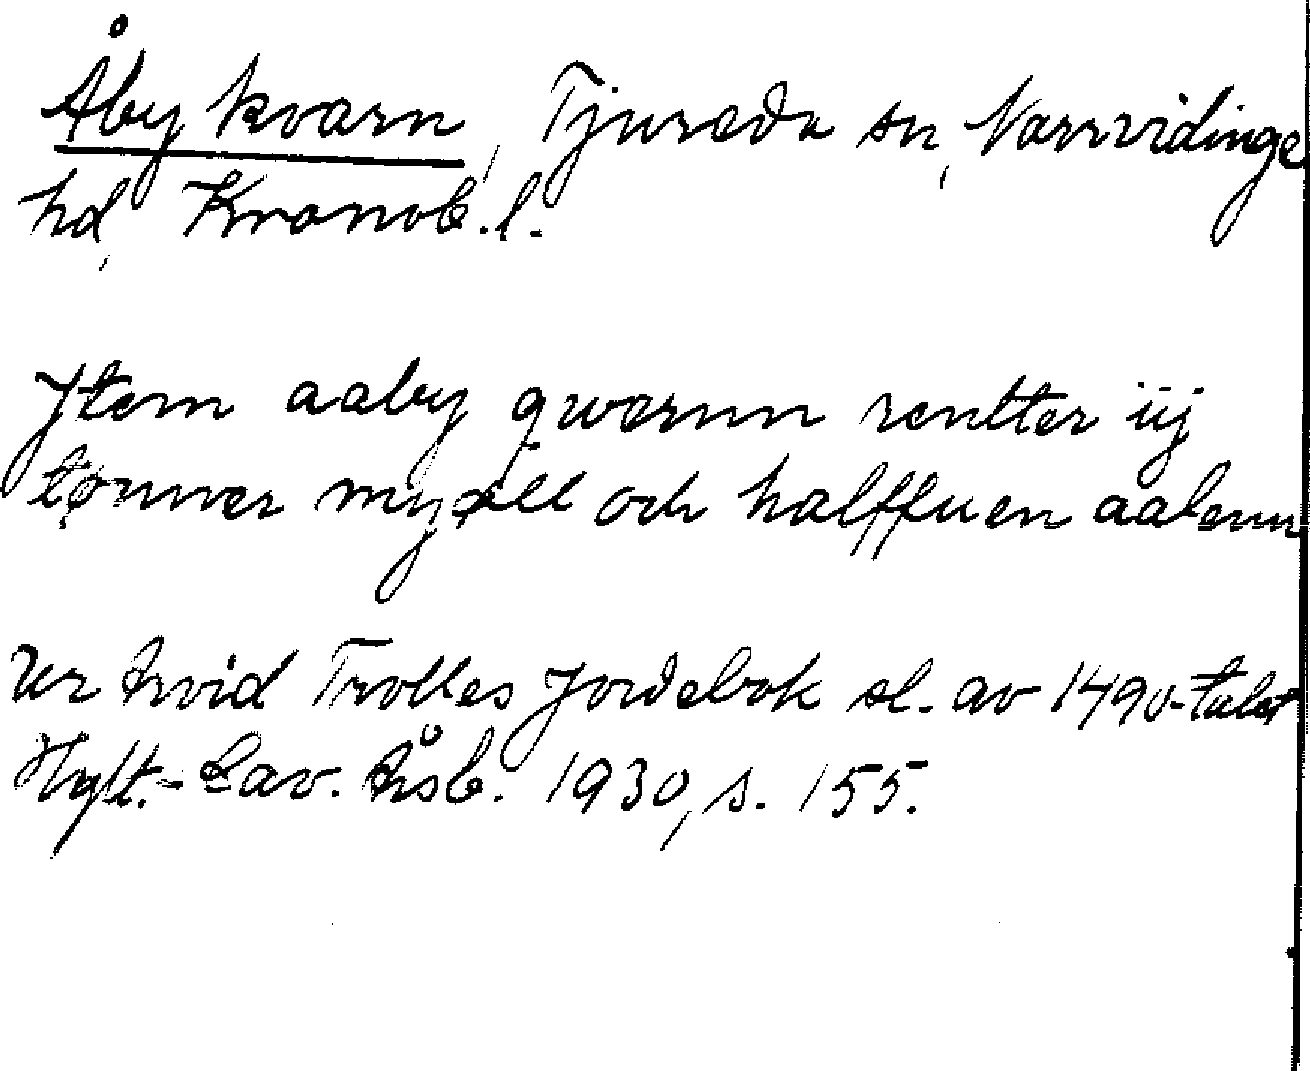 Åby kvarn, Tjureda sn, Norrvidinge
hd, Kronob. l.
Jtem aaby qwernn rentter iij
tønner myæll och halffuen aalenn
Ur Arvid Trolles Jordebok sl. av 1490-talet
Hylt.-Cav. Åsb. 1930, s. 155.